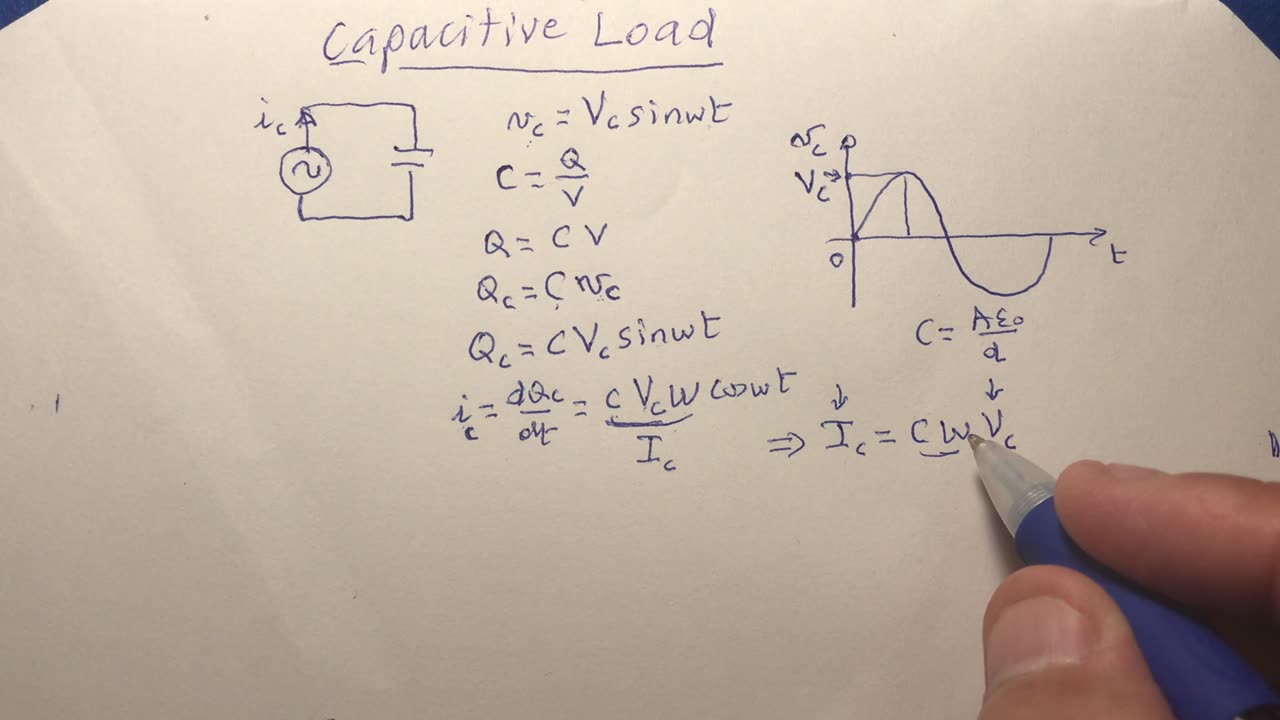 Capacitive Load
i_c
v_c = V_c sinωt
C = Q/V
Q = C V
Q_c = C v_c
Q_c = C V_c sinωt
i_c = dQ_c/dt = C V_c ω cosωt
I_c
⇒ I_c = C ω V_c
v_c
V_c
0
t
C = Aε₀/d